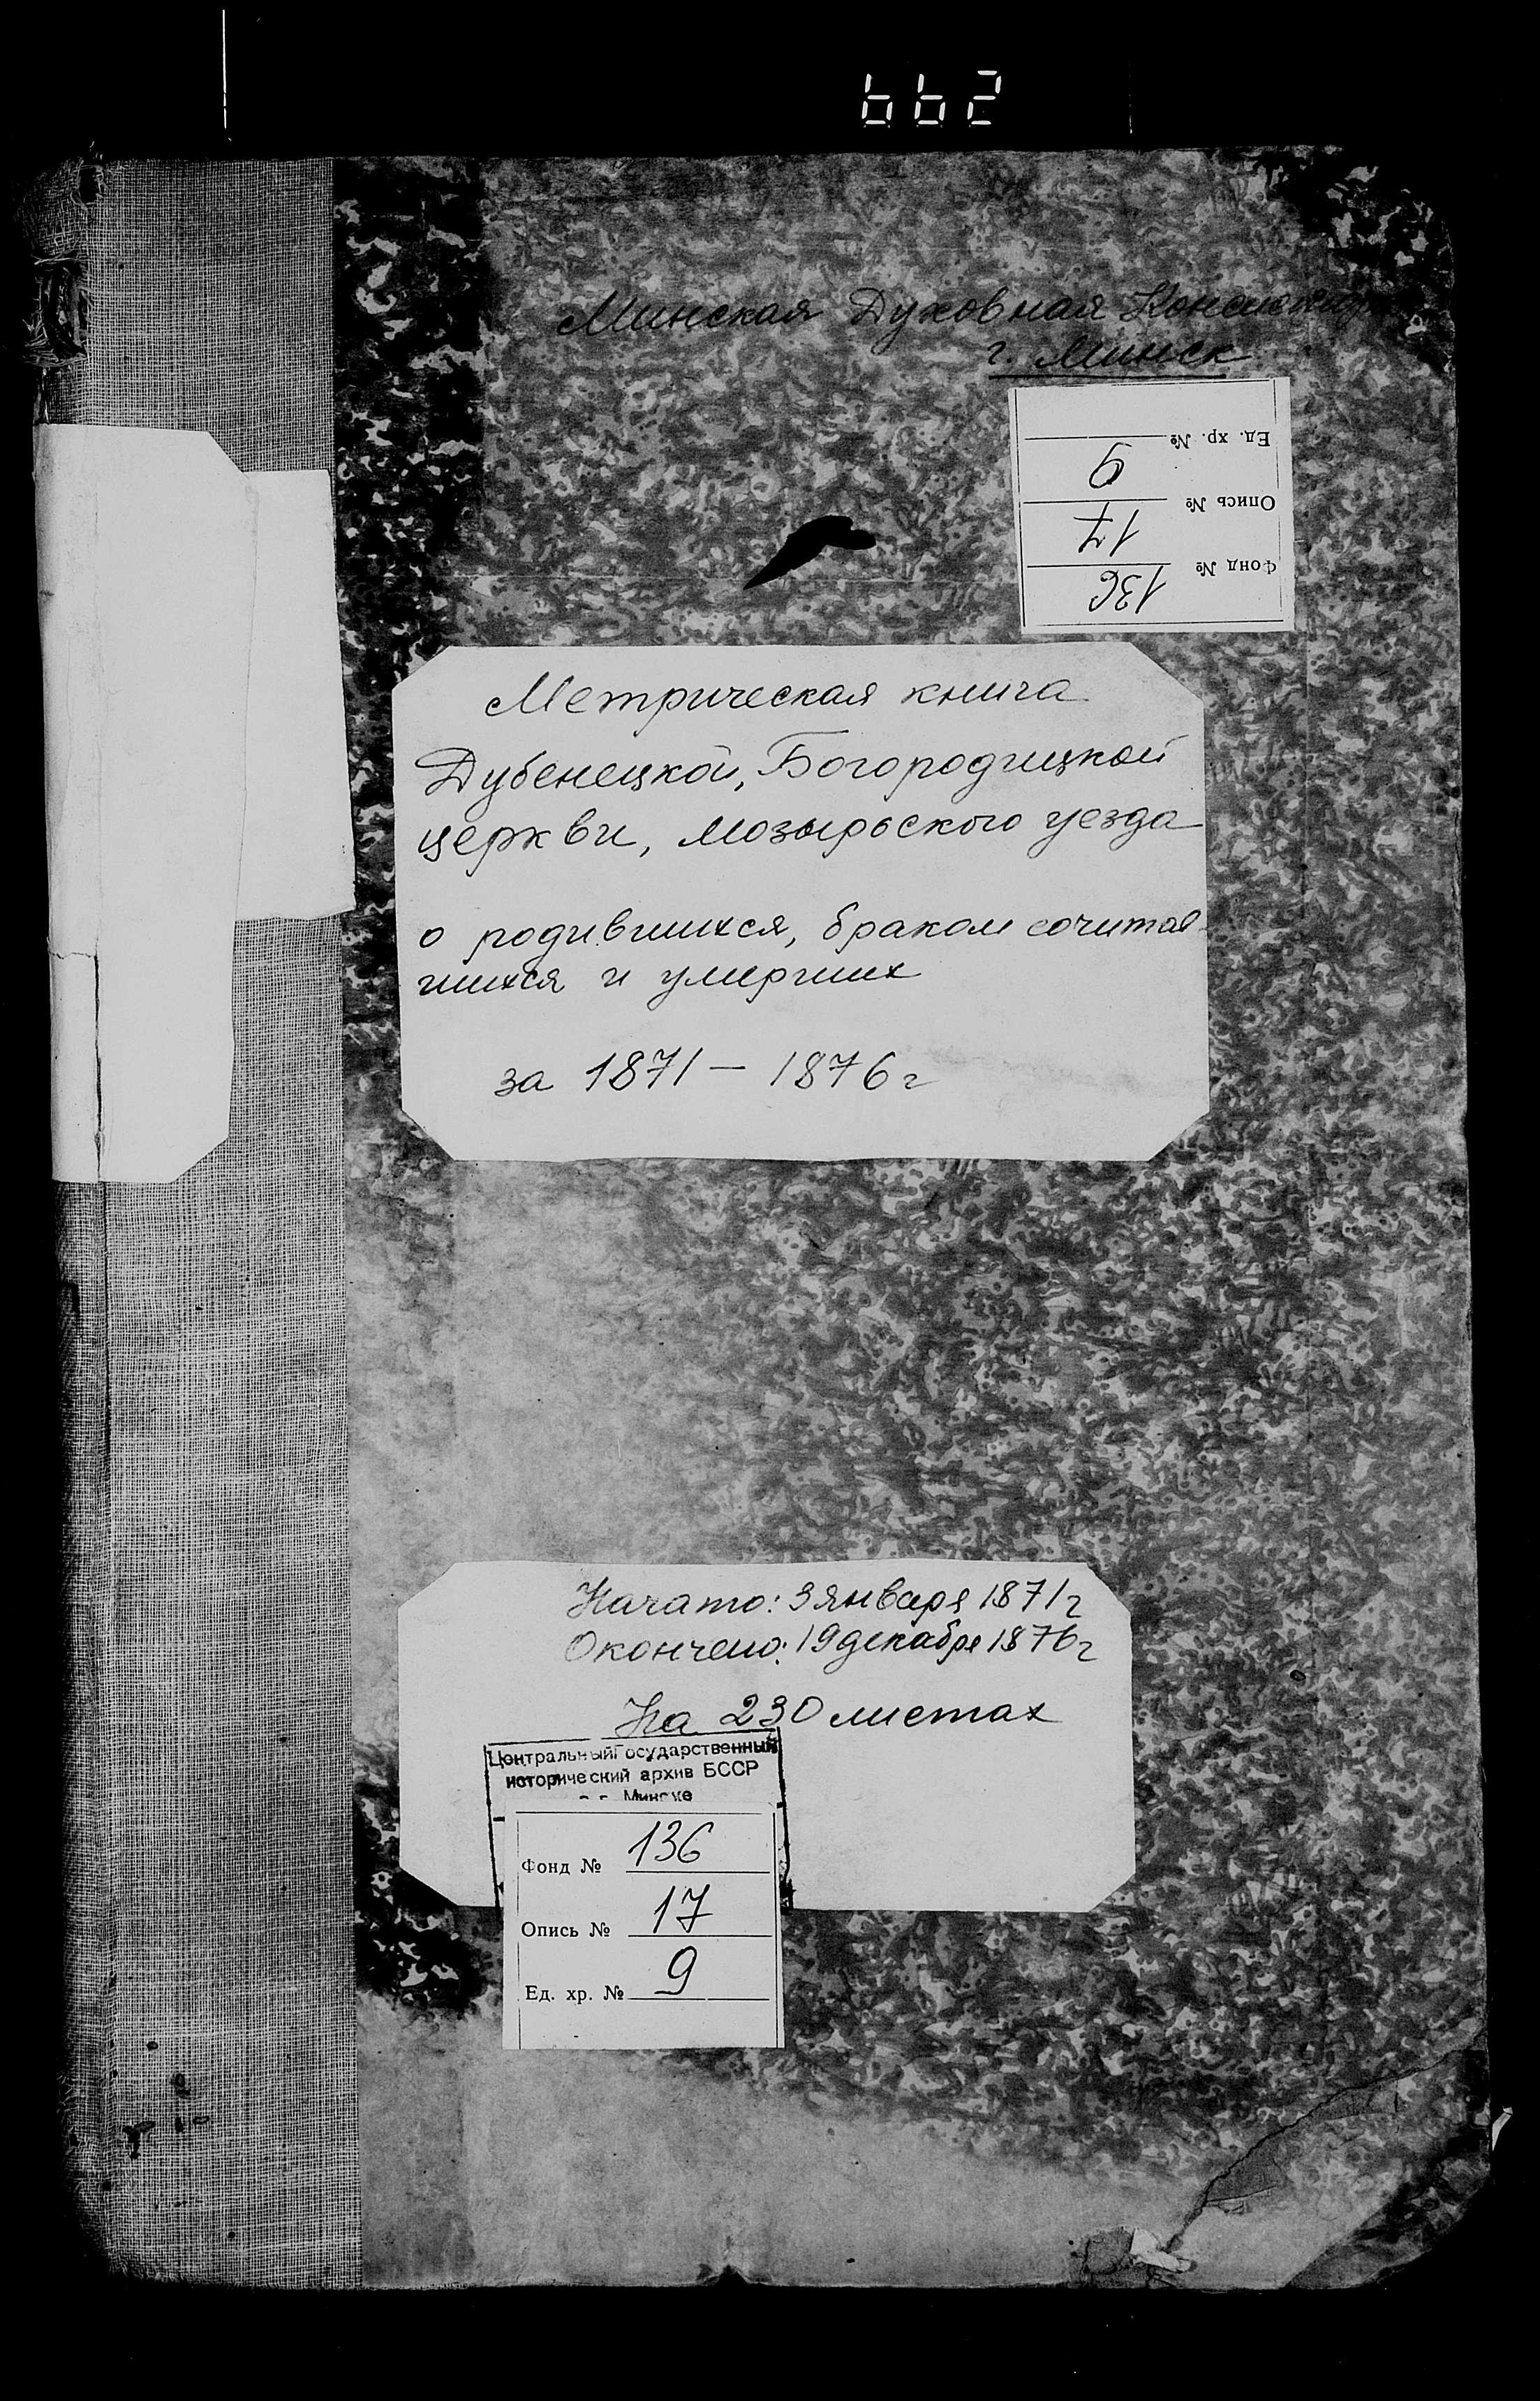 662
Минская Духовная
г. Минск
Ед. хр. № 9
Опись № 17
Фонд № 136
Метрическая книга
Дубенецкой, Богородицкой
церкви, Мозырьского уезда
о родившихся, браком сочитав-
шихся и умерших
за 1871 – 1876 г
Начато: 3 января 1871 г
Окончено: 19 декабря 1876 г
На 230 листах
Центральный Государственный
исторический архив БССР
в г. Минске
Фонд № 136
Опись № 17
Ед. хр. № 9